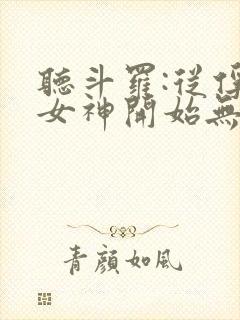 聽斗羅:從俘
女神開始無
青顏如風